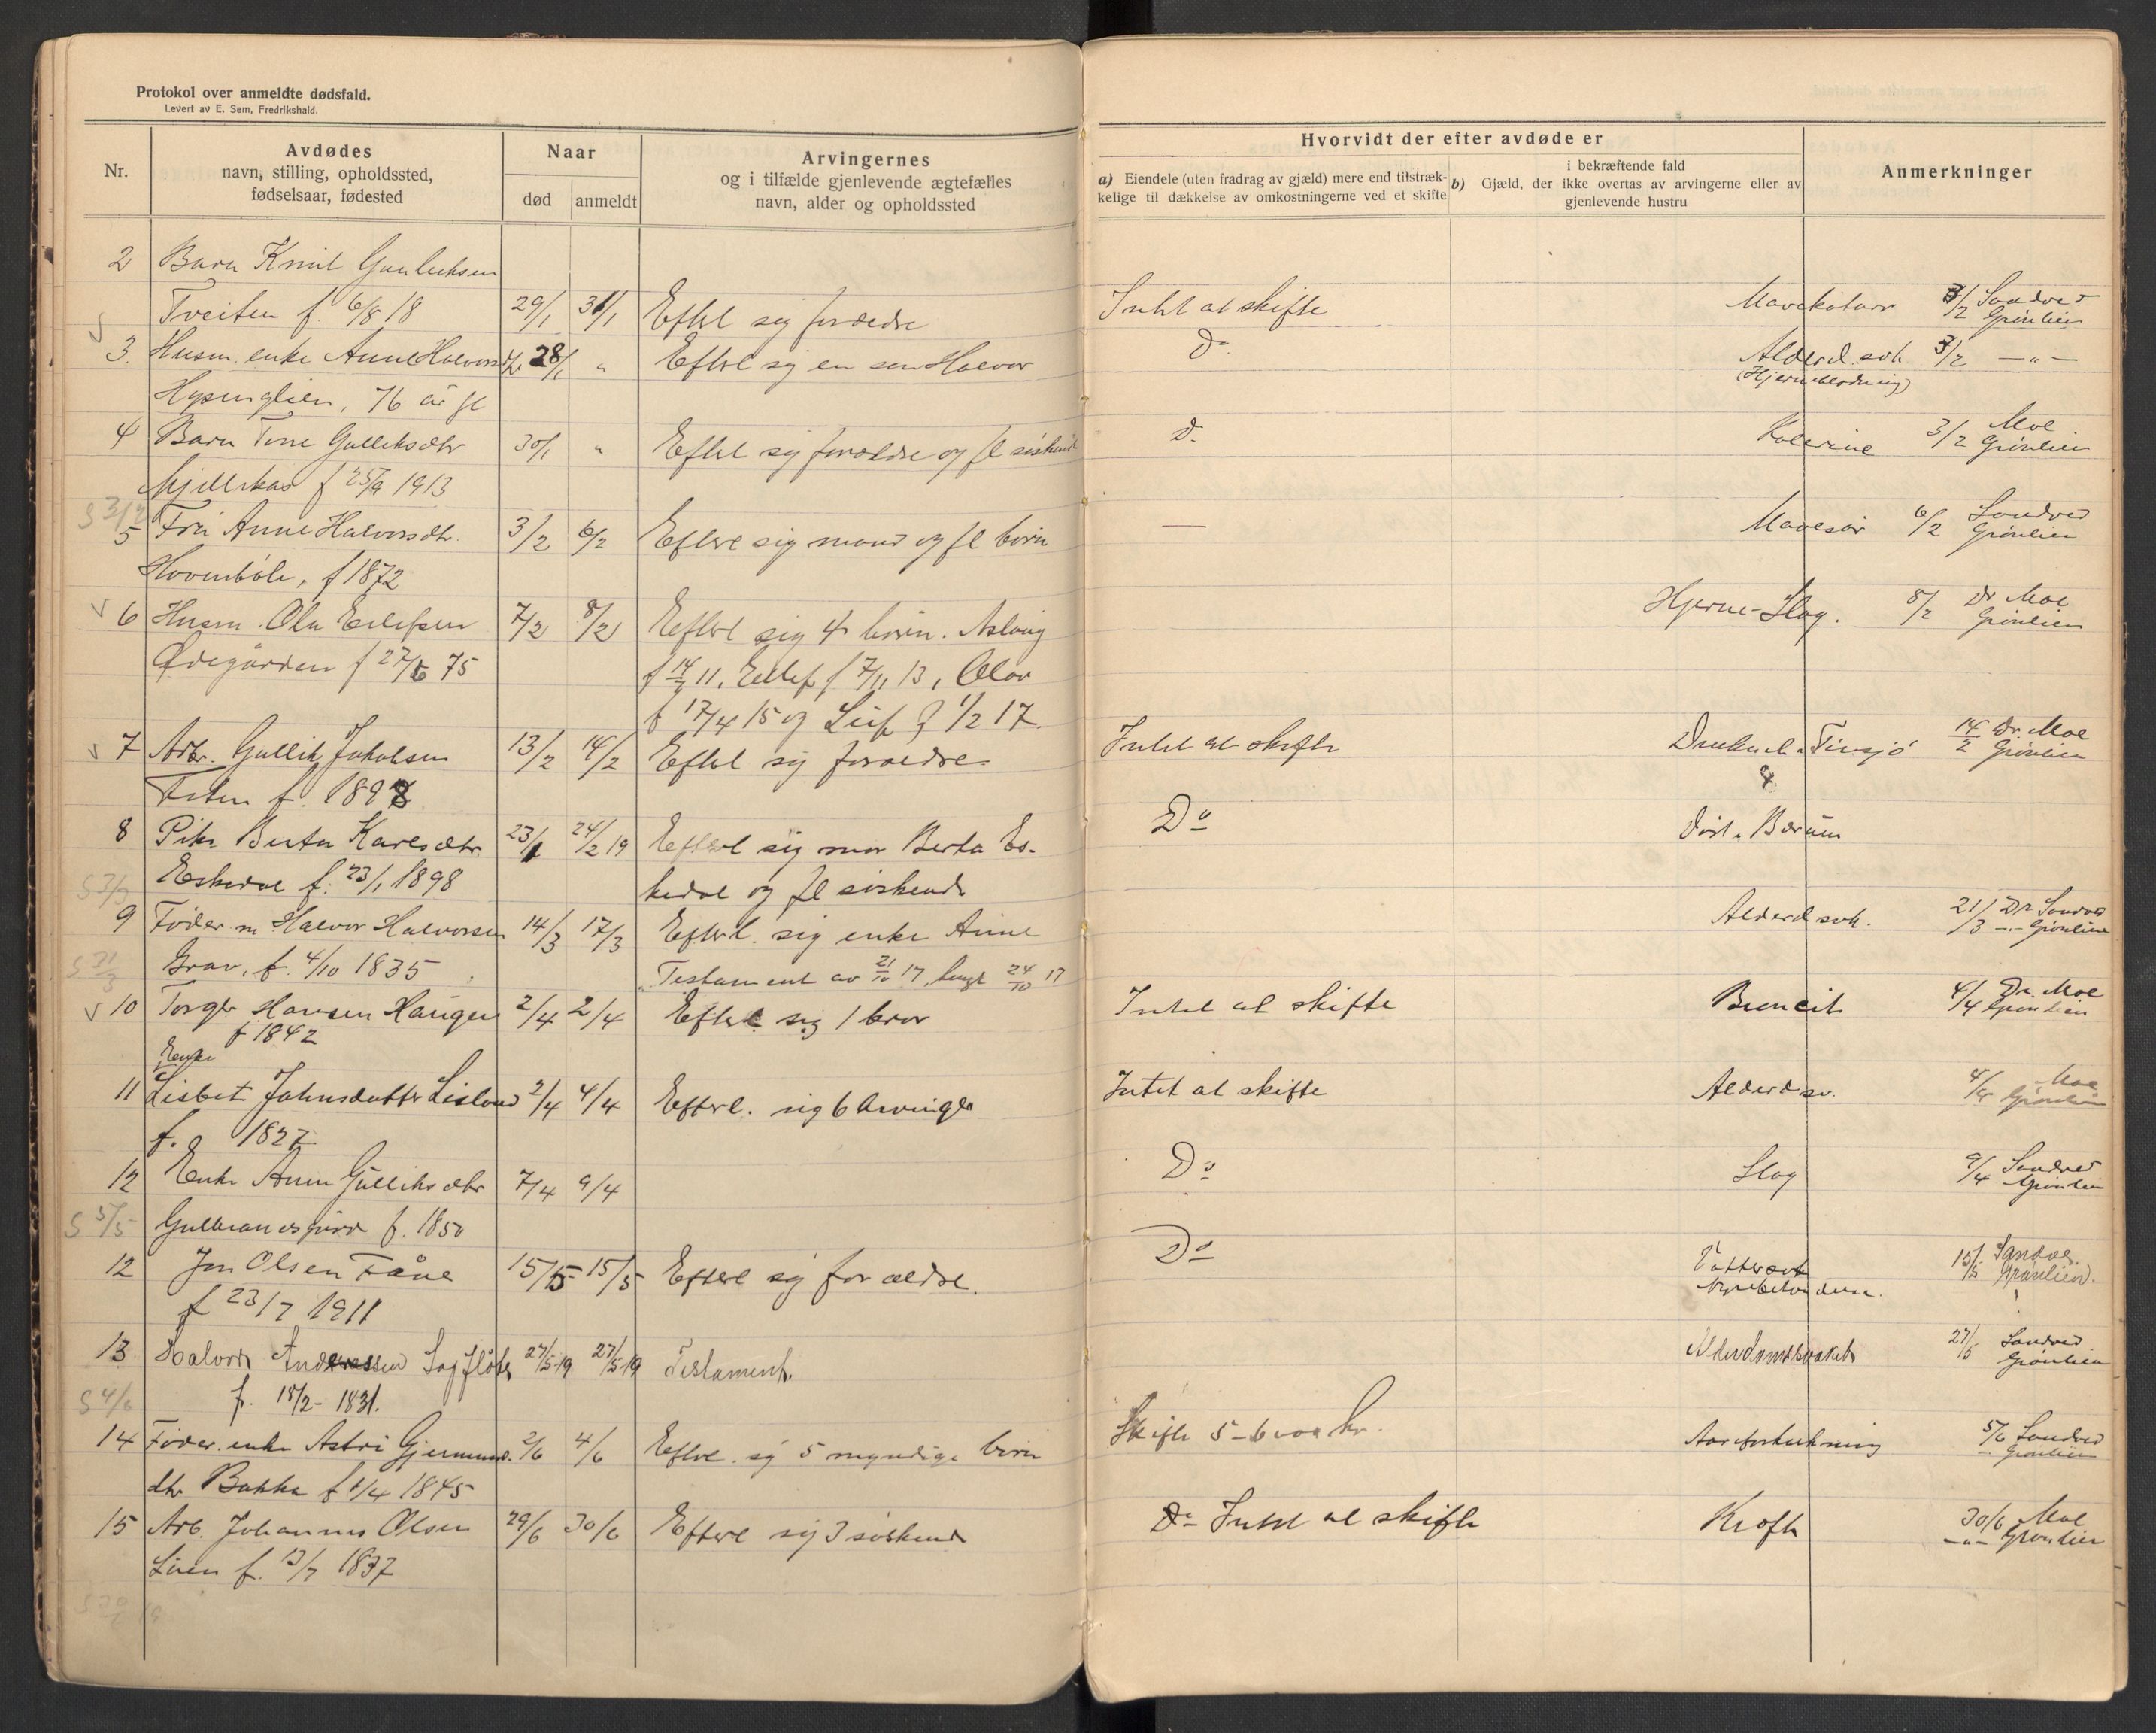 Protokol over anmeldte dødsfald.
Levert av E. Sem, Fredrikshald.
Nr.
Avdødes
navn, stilling, opholdssted,
fødselsaar, fødested
Naar
død
anmeldt
Arvingernes
og i tilfælde gjenlevende ægtefælles
navn, alder og opholdssted
Hvorvidt der efter avdøde er
a) Eiendele (uten fradrag av gjæld) mere end tilstræk-
kelige til dækkelse av omkostningerne ved et skifte
i bekræftende fald
b) Gjæld, der ikke overtas av arvingerne eller av
gjenlevende hustru
Anmerkninger
2 Barn Knut Gunleiksen
Tveiten f. 6/8 18 29/1 31/1 Efterl sig forældre Intet at skifte Mavekatarr 3/2 Sandved
Grønlien
3. Husm. enke Anne Halvorsdtr 28/1 " Efterl sig en søn Halvor Do Alderd. svk 3/2 — " —
(Hjerneblødning)
76 år gl
4 Barn Tone Gulleiksdtr 30/1 " Efterl sig forældre og fl søskende Do Kolerine 3/2 Moe
Grønlien
f 25/9 1913
S 3/2
5 Fru Anne Halvorsdtr. 3/2 6/2 Efterl sig mand og fl børn — Mavesår 6/2 Sandved
Grønlien
f 1872
6 Husm. Ola Eilefsen 7/2 8/2 Efterl sig 4 børn. Aslaug Hjerne-Slag. 8/2 Dr Moe
Grønlien
Ødegården f 27/6 75 11, Eilef f 7/11 13, Olav
f 17/4 15 og Leif f 1/2 17.
7 Arb. Gullik Jakobsen 13/2 14/2 Efterl sig forældre Intet at skifte Tinsjø 14/2 Dr. Moe
Grønlien
f. 1898
8 Pike Berta Karlsdtr. 23/1 24/2 19 Efterl sig mor Berta Es- Do Bærum
Eskedal f. 23/1 1898 kedal og fl søskende
9 Føder.m. Halvor Halvorsen 14/3 17/3 Efterl. sig enke Anne Alderd svk. 21/3 Dr Sandved
—"— Grønlien
Grav, f. 4/10 1835 Testament av 21/10 17, 24/10 17
S 31/3
10 Torger Hansen Haugen 2/4 2/4 Efterl. sig 1 bror Intet at skifte 4/4 Dr. Moe
Grønlien
f 1842
Enke
11 Lisbet Johnsdatter Lisland 2/4 4/4 Efterl. sig 6 Arvinger Intet at skifte Alderdsv. 4/4 Moe
Grønlien
f. 1827
12 Enke Anne Gulliksdtr 7/4 9/4 Do Slag 9/4 Sandved
Grønlien
S 5/5 f. 1850
12 Jon Olsen Fåne 15/5 15/5 Efterl sig forældre. Do Vattersot 15/5 Sandve.
Grønlien.
f 23/7 1911
13 Halvor Andressen 27/5-19 27/5-19 Testament. Alderdomssvakek 27/5 Sandved
Grønlien
S 4/6 f. 18/2- 1831.
14 Føder. enke Astri Gjermund. 2/6 4/6 Efterl. sig 5 myndige børn Skifte 5-6000 kr. Aareforkalkning 5/6 Sandved
Grønlien
dtr Bakka f 1/4 1845
15 Arb. Johannes Olsen 29/6 30/6 Efterl sig 3 søskende Do Intet at skifte Kræft 30/6 Moe
—"— Grønlien
Løien f. 13/7 1837